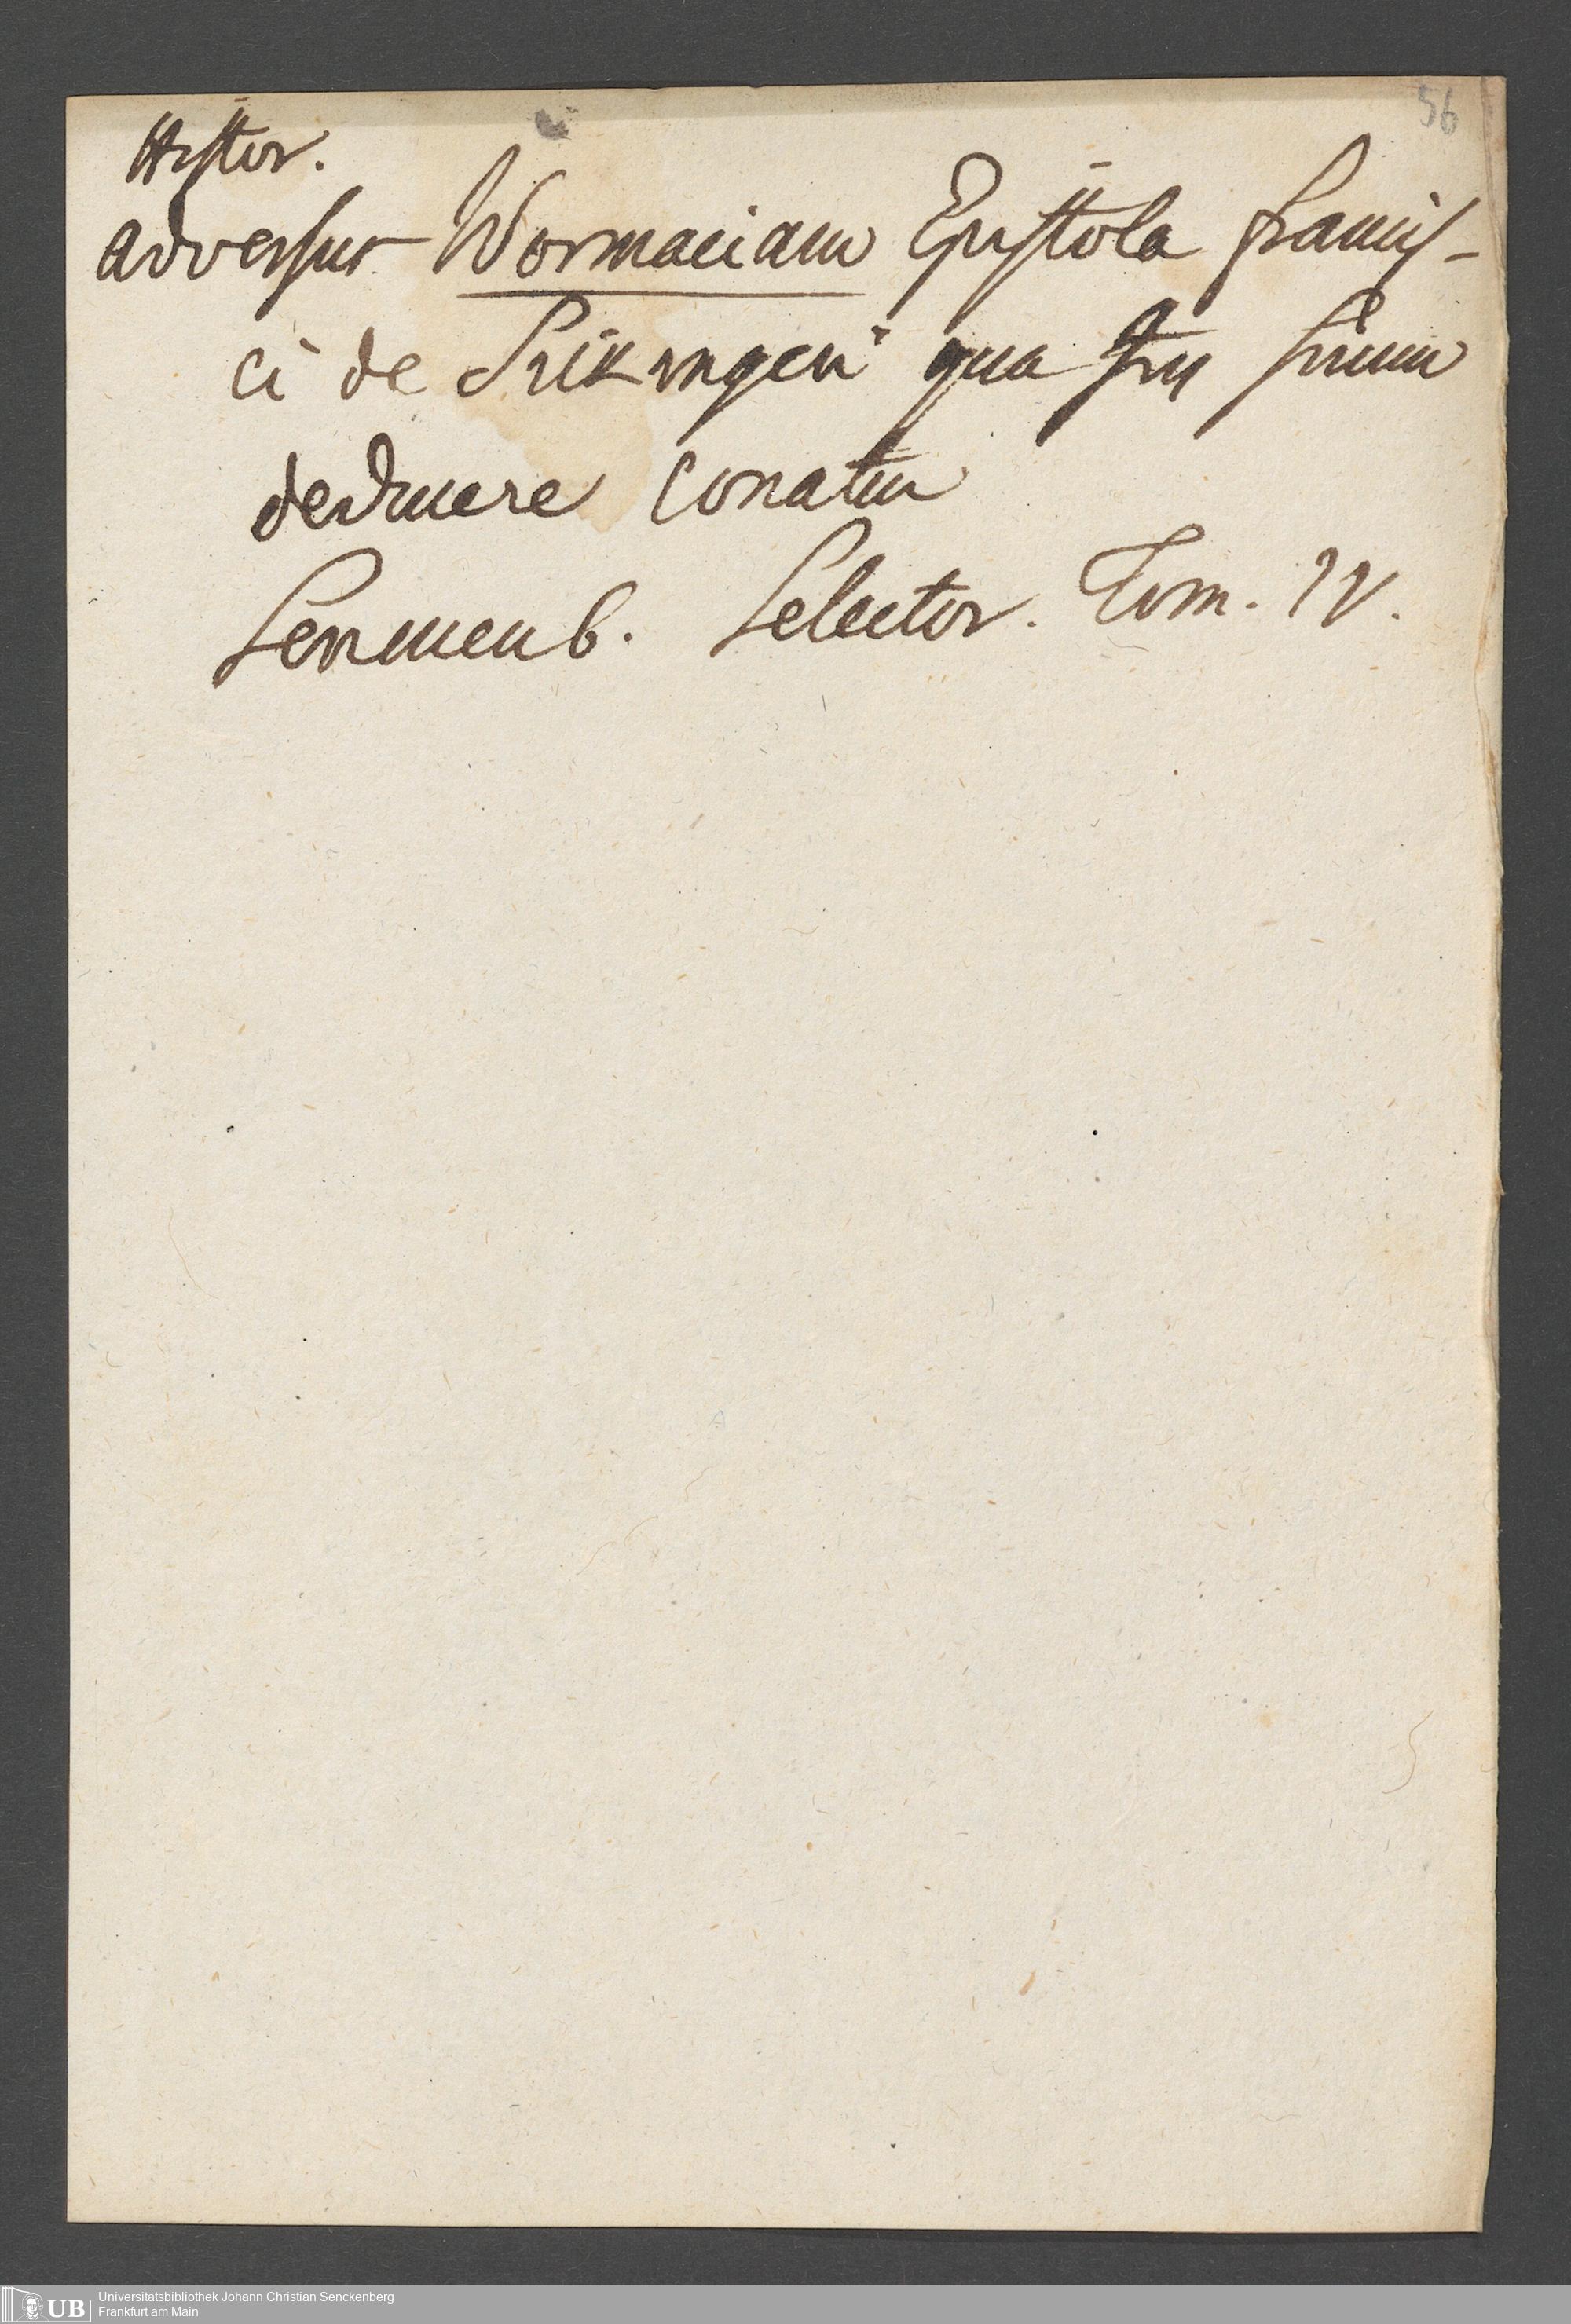 56
Histor.
adversus Wormaciam Epistola Francis-
ci de Sickingen qua suum
deducere conatur
Senckenb. Selector. Tom. IV.
UB
Universitätsbibliothek Johann Christian Senckenberg
Frankfurt am Main